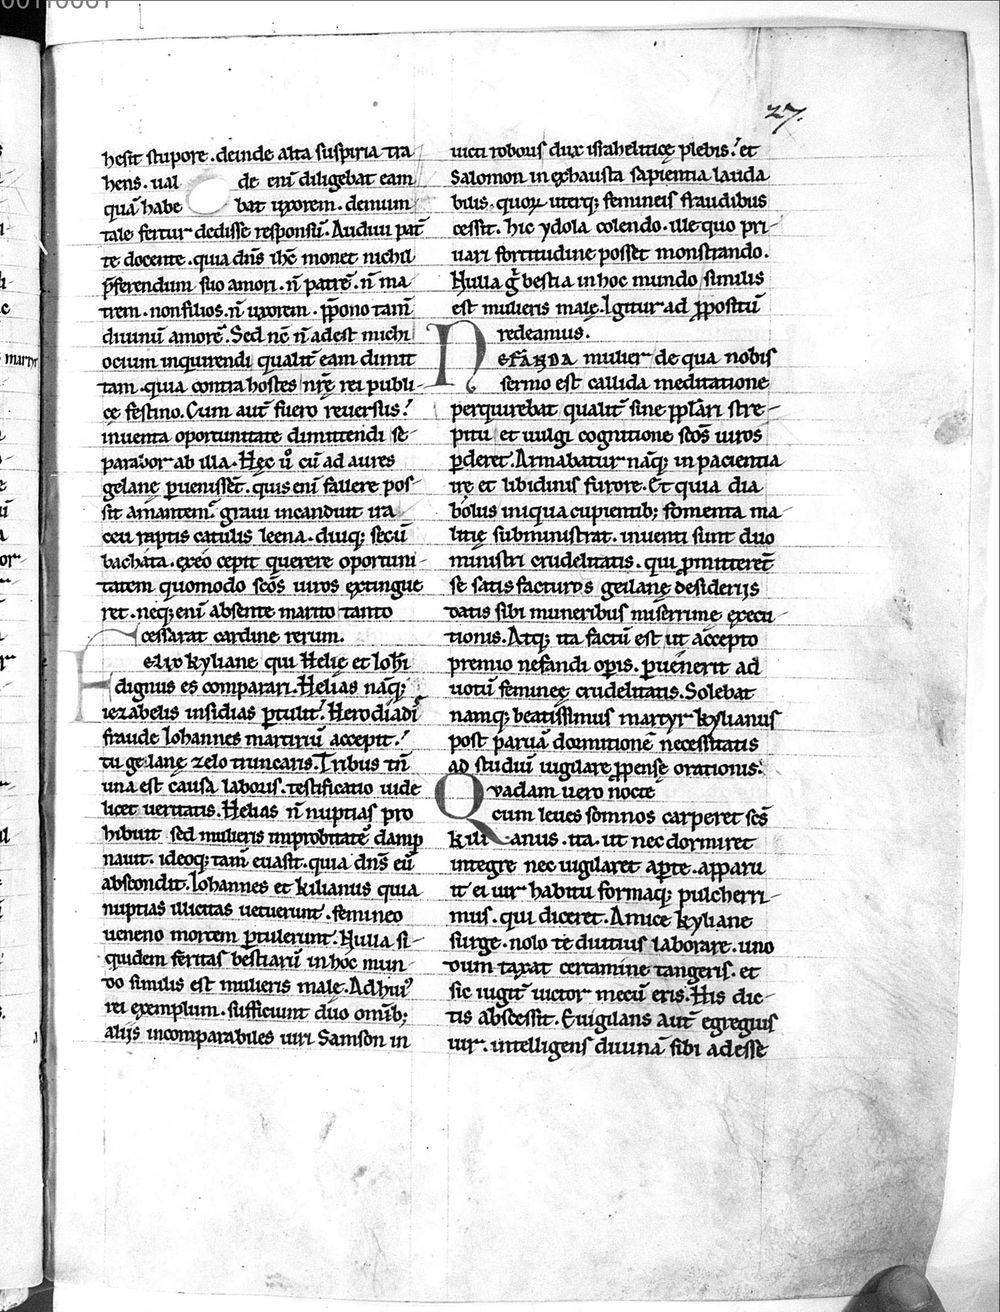 27.
hesit stupore. deinde alta suspiria tra
hens. ual de eniᷤ diligebat eam
quā habe bat uxorem. demum
tale fertur dedisse responsū. Audiui pat̄
te docente. quia dn̄s ih̄c monet nichil
p̄ferendum suo amori. n̄ patrē. n̄ ma
trem. non filios. n̄ uxorem. p̄pono tam̄
diuinū amorē. Sed nc̄ n̄ adest michi
ocium inquirendi qualit̄ eam dimit
tam. quia contra hostes nr̄ę rei publi-
cę festino. Cum aut̄ fuero reuersus!
inuenta oportunitate dimittendi se
parabor ab illa. Hęc ů cū ad aures
geilanę ꝑuenissēt. quis enī fallere pos-
sit amantem? graui incanduit ira
ceu raptis catulis leena. diuq; secū
bachata. exeo cepit querere oportuni-
tatem quomodo sc̄os uiros extingue
ret. neq; enī absente marito tanto
cessarat cardine rerum.
Felix kyliane qui Helię et Ioh̄i
dignus es comparari. Helias nāq;
iezabelis insidias ꝑtulit! Herodiadis
fraude Iohannes martiriū accepit!
tu geilanę zelo truncaris. Tribus tn̄
una est causa laboris. testificatio uide
licet ueritatis. Helias n̄ nuptias pro
hibuit sed mulieris improbitatē damp
nauit. ideoq; tam̄ euasit. quia dn̄s eū
abscondit. Iohannes et kilianus quia
nuptias illicitas uetuerunt. femineo
ueneno mortem ꝑtulerunt. Nulla si-
quidem feritas bestiarū in hoc mun
do similis est mulieris malę. Ad hui᷒
rei exemplum. sufficiunt duo omīb;
alijs incomparabiles uiri Samson in
uicti roboris dux israheliticę plebis! et
Salomon in exhausta sapientia lauda
bilis. quoꝝ uterq; femineis fraudibus
cessit. hic ydola colendo. ille quo pri-
uari fortitudine posset monstrando.
Nulla ḡ bestia in hoc mundo similis
est mulieris malę. Igitur ad ꝓpositū
redeamus.
NEFANDA mulier de qua nobis
sermo est callida meditatione
perquirebat qualit̄ sine pp̄lari stre-
pitu et uulgi cognitione sc̄os uiros
ꝑderet. Armabatur nāq; in pacientia
irę et libidinis furore. Et quia dia
bolus iniqua cupientib; fomenta ma
litię subministrat. inuenti sunt duo
ministri crudelitatis. qui ꝓmitterēt
se satis facturos geilanę desiderijs
datis sibi muneribus miserrimę execu-
tionis. Atq; ita factū est ut accepto
premio nefandi opis. ꝑuenerit ad
uotū feminęę crudelitatis. Solebat
namq; beatissimus martyr kylianus
post paruā dormitionē necessitatis
ad studiū uigilare ꝓpense orationis.
Quadam uero nocte
cum leues somnos carperet sc̄s
kili anus. ita. ut nec dormiret
integre nec uigilaret aꝑte. apparu
it ei uir habitu formaq; pulcherri-
mus. qui diceret. Amice kyliane
surge. nolo te diutius laborare. uno
dum taxat certamine tangeris. et
sic iugit̄ uictor mecū eris. His dic-
tis abscessit. Euigilans aut̄ egregius
uir. intelligens diuinā sibi adesse